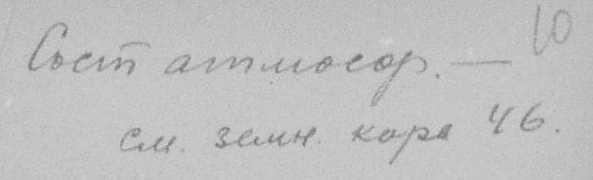 Сост атмосф. — 10
см. земн. кора 46.